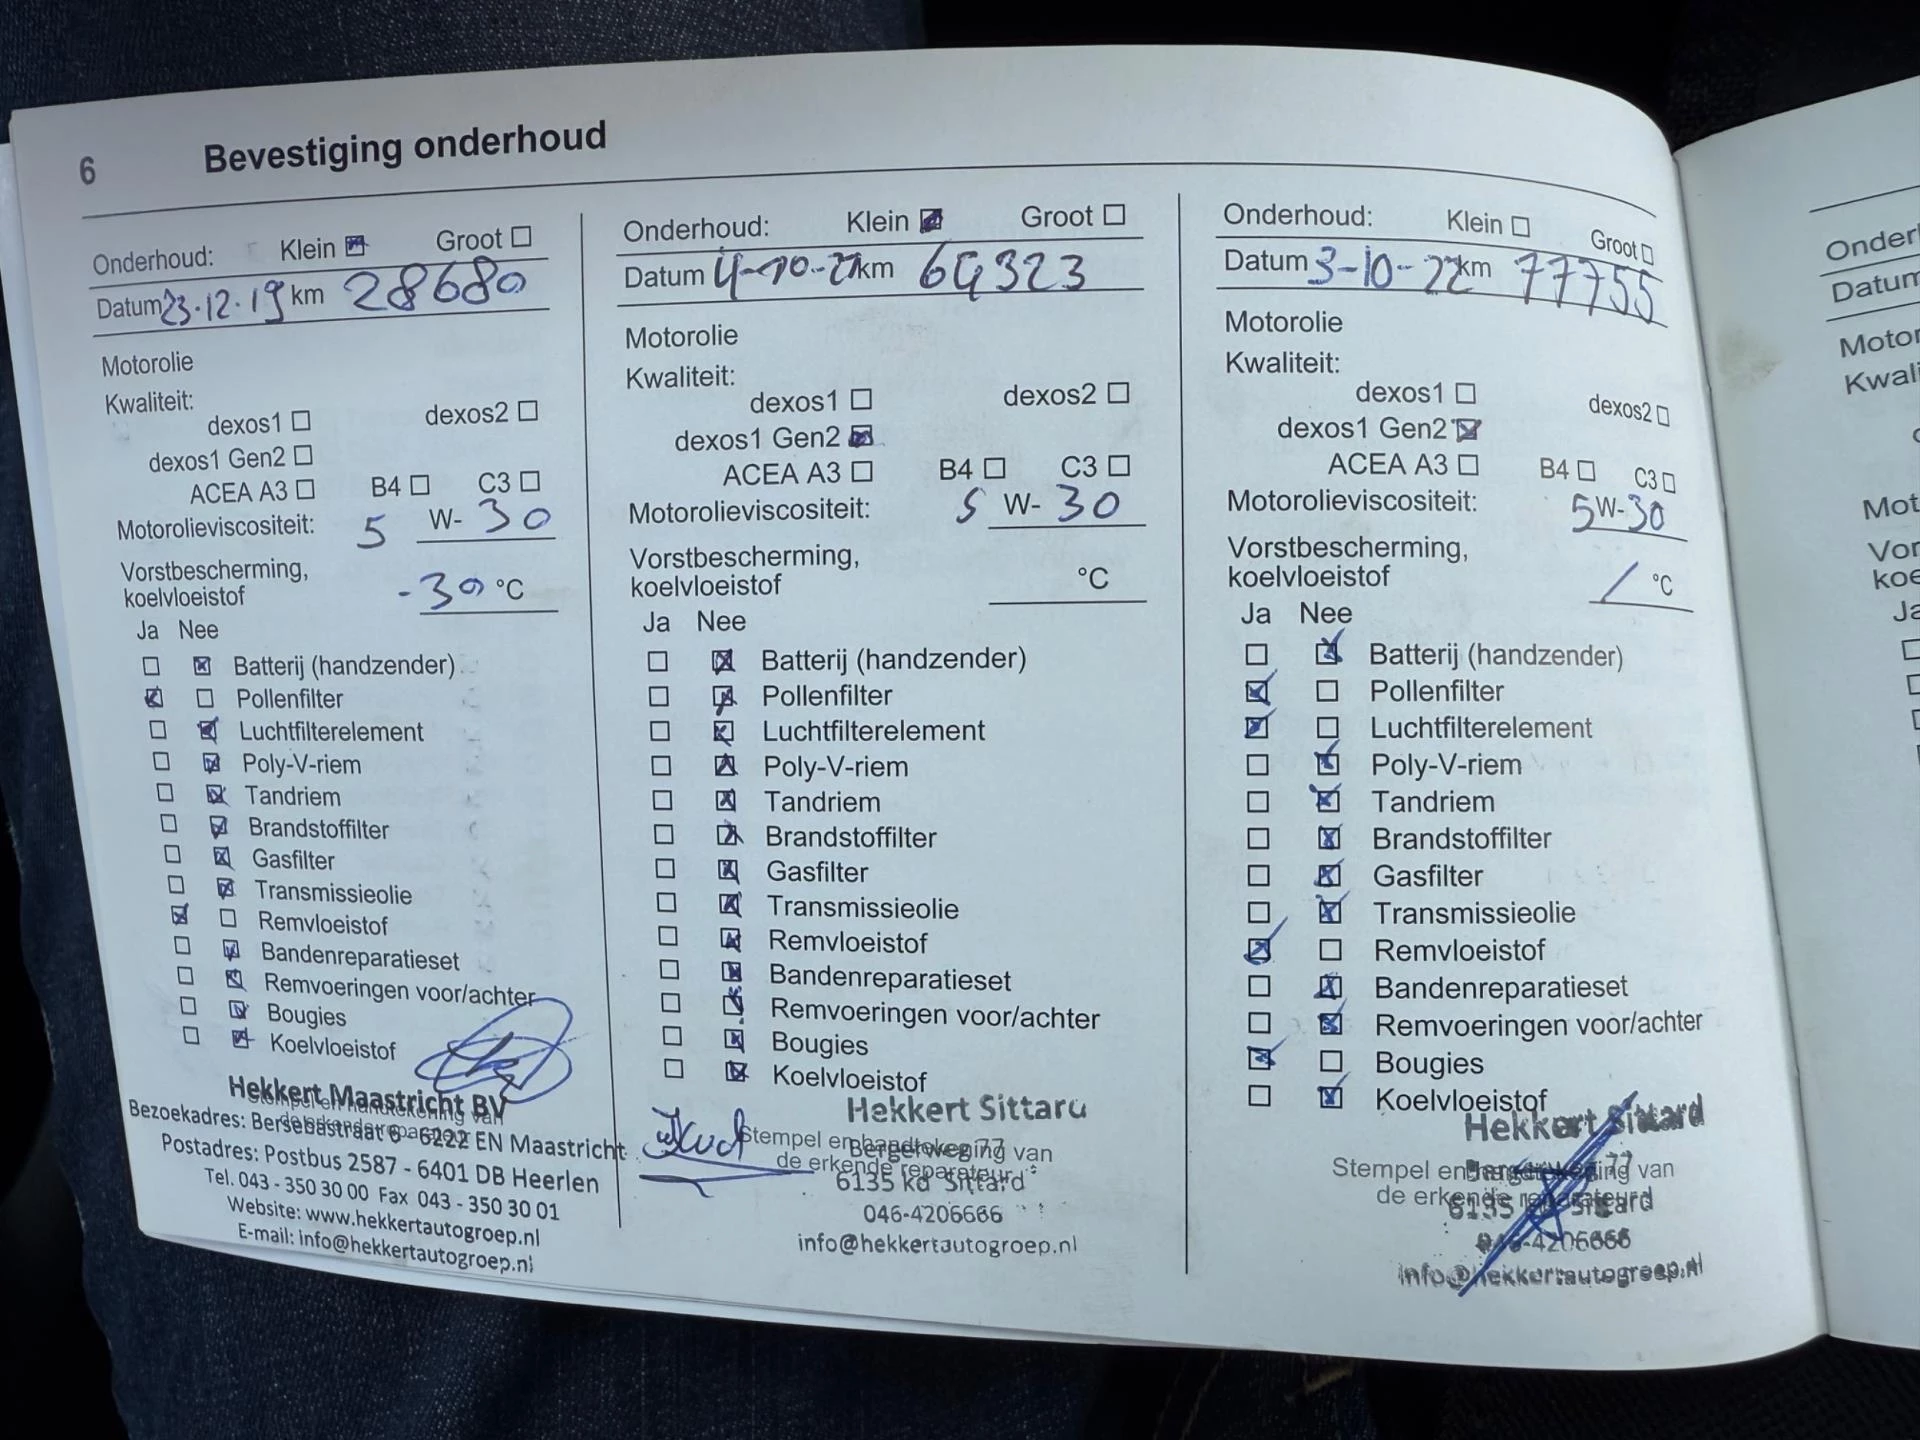 6 Bevestiging onderhoud
Onderhoud: Klein Groot
Datum 23-12-19 km 28680
Motorolie
Kwaliteit:
dexos1 dexos2
dexos1 Gen2
ACEA A3 B4 C3
Motorolieviscositeit: 5 W- 30
Vorstbescherming,
koelvloeistof -30 °C
Ja Nee
Batterij (handzender)
Pollenfilter
Luchtfilterelement
Poly-V-riem
Tandriem
Brandstoffilter
Gasfilter
Transmissieolie
Remvloeistof
Bandenreparatieset
Remvoeringen voor/achter
Bougies
Koelvloeistof
Hekkert Maastricht BV
Stempel en handtekening van
de erkende reparateur
Bezoekadres: Bersebastraat 6 - 6222 EN Maastricht
Postadres: Postbus 2587 - 6401 DB Heerlen
Tel. 043 - 350 30 00 Fax 043 - 350 30 01
Website: www.hekkertautogroep.nl
E-mail: info@hekkertautogroep.nl
Onderhoud: Klein Groot
Datum 4-10-21 km 69323
Motorolie
Kwaliteit:
dexos1 dexos2
dexos1 Gen2
ACEA A3 B4 C3
Motorolieviscositeit: 5 W- 30
Vorstbescherming,
koelvloeistof °C
Ja Nee
Batterij (handzender)
Pollenfilter
Luchtfilterelement
Poly-V-riem
Tandriem
Brandstoffilter
Gasfilter
Transmissieolie
Remvloeistof
Bandenreparatieset
Remvoeringen voor/achter
Bougies
Koelvloeistof
Hekkert Sittard
Stempel en handtekening van
Bergerweg 77
de erkende reparateur
6135 kd Sittard
046-4206666
info@hekkertautogroep.nl
Onderhoud: Klein Groot
Datum 3-10-22 km 77755
Motorolie
Kwaliteit:
dexos1 dexos2
dexos1 Gen2
ACEA A3 B4 C3
Motorolieviscositeit: 5 W- 30
Vorstbescherming,
koelvloeistof / °C
Ja Nee
Batterij (handzender)
Pollenfilter
Luchtfilterelement
Poly-V-riem
Tandriem
Brandstoffilter
Gasfilter
Transmissieolie
Remvloeistof
Bandenreparatieset
Remvoeringen voor/achter
Bougies
Koelvloeistof
Hekkert Sittard
Stempel en handtekening van
77
de erkende reparateur
6135 Sittard
046-4206666
info@hekkertautogroep.nl
Onder
Datum
Motor
Kwali
Mot
Vor
koe
Ja